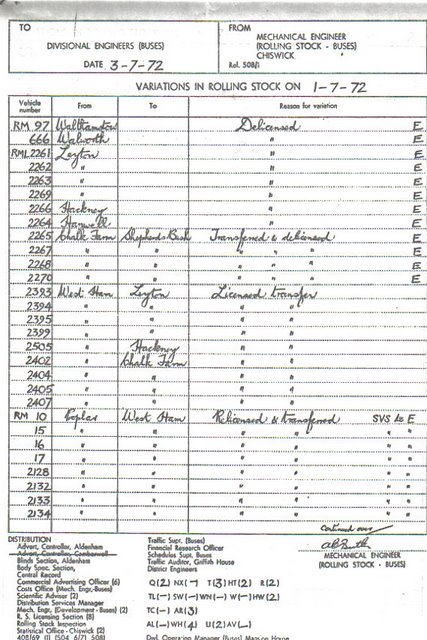 TO
DIVISIONAL ENGINEERS (BUSES)
DATE 3-7-72
FROM
MECHANICAL ENGINEER
(ROLLING STOCK - BUSES)
CHISWICK
Ref. 508/1
VARIATIONS IN ROLLING STOCK ON 1-7-72
Vehicle number From To Reason for variation
RM 97 Walthamstow Delicensed E
666 Walworth " E
RML 2261 Leyton " E
2262 " " E
2263 " " E
2269 " " E
2266 Hackney " E
2264 Hanwell " E
2265 Chalk Farm Shepherds Bush Transferred & delicensed E
2267 " " " " " E
2268 " " " " " E
2270 " " " " " E
2393 West Ham Leyton Licensed transfer
2394 " " " "
2395 " " " "
2399 " " " "
2505 " Hackney " "
2402 " Chalk Farm " "
2404 " " " "
2405 " " " "
2407 " " " "
RM 10 Poplar West Ham Relicensed & transferred SVS to E
15 " " " " " "
16 " " " " " "
17 " " " " " "
2128 " " " " " "
2132 " " " " " "
2133 " " " " " "
2134 " " " " " "
continued over
MECHANICAL ENGINEER
(ROLLING STOCK - BUSES)
DISTRIBUTION
Advert. Controller, Aldenham
Advert. Controller, Camberwell
Blinds Section, Aldenham
Body Spec. Section,
Central Record
Commercial Advertising Officer (6)
Costs Office (Mech. Engr.-Buses)
Scientific Adviser (2)
Distribution Services Manager
Mech. Engr. (Development - Buses) (2)
R. S. Licensing Section (8)
Rolling Stock Inspection
Statistical Office - Chiswick (2)
Traffic Supt. (Buses)
Financial Research Officer
Schedules Supt. Buses
Traffic Auditor, Griffith House
District Engineers
Q(2) NX(-) T(3) HT(2) R(2)
TL(-) SW(-) WN(-) W(-) HW(2)
TC(-) AR(3)
AL(-) WH(4) U(2) AV(-)
Dvl. Operating Manager (Buses) Mansion House